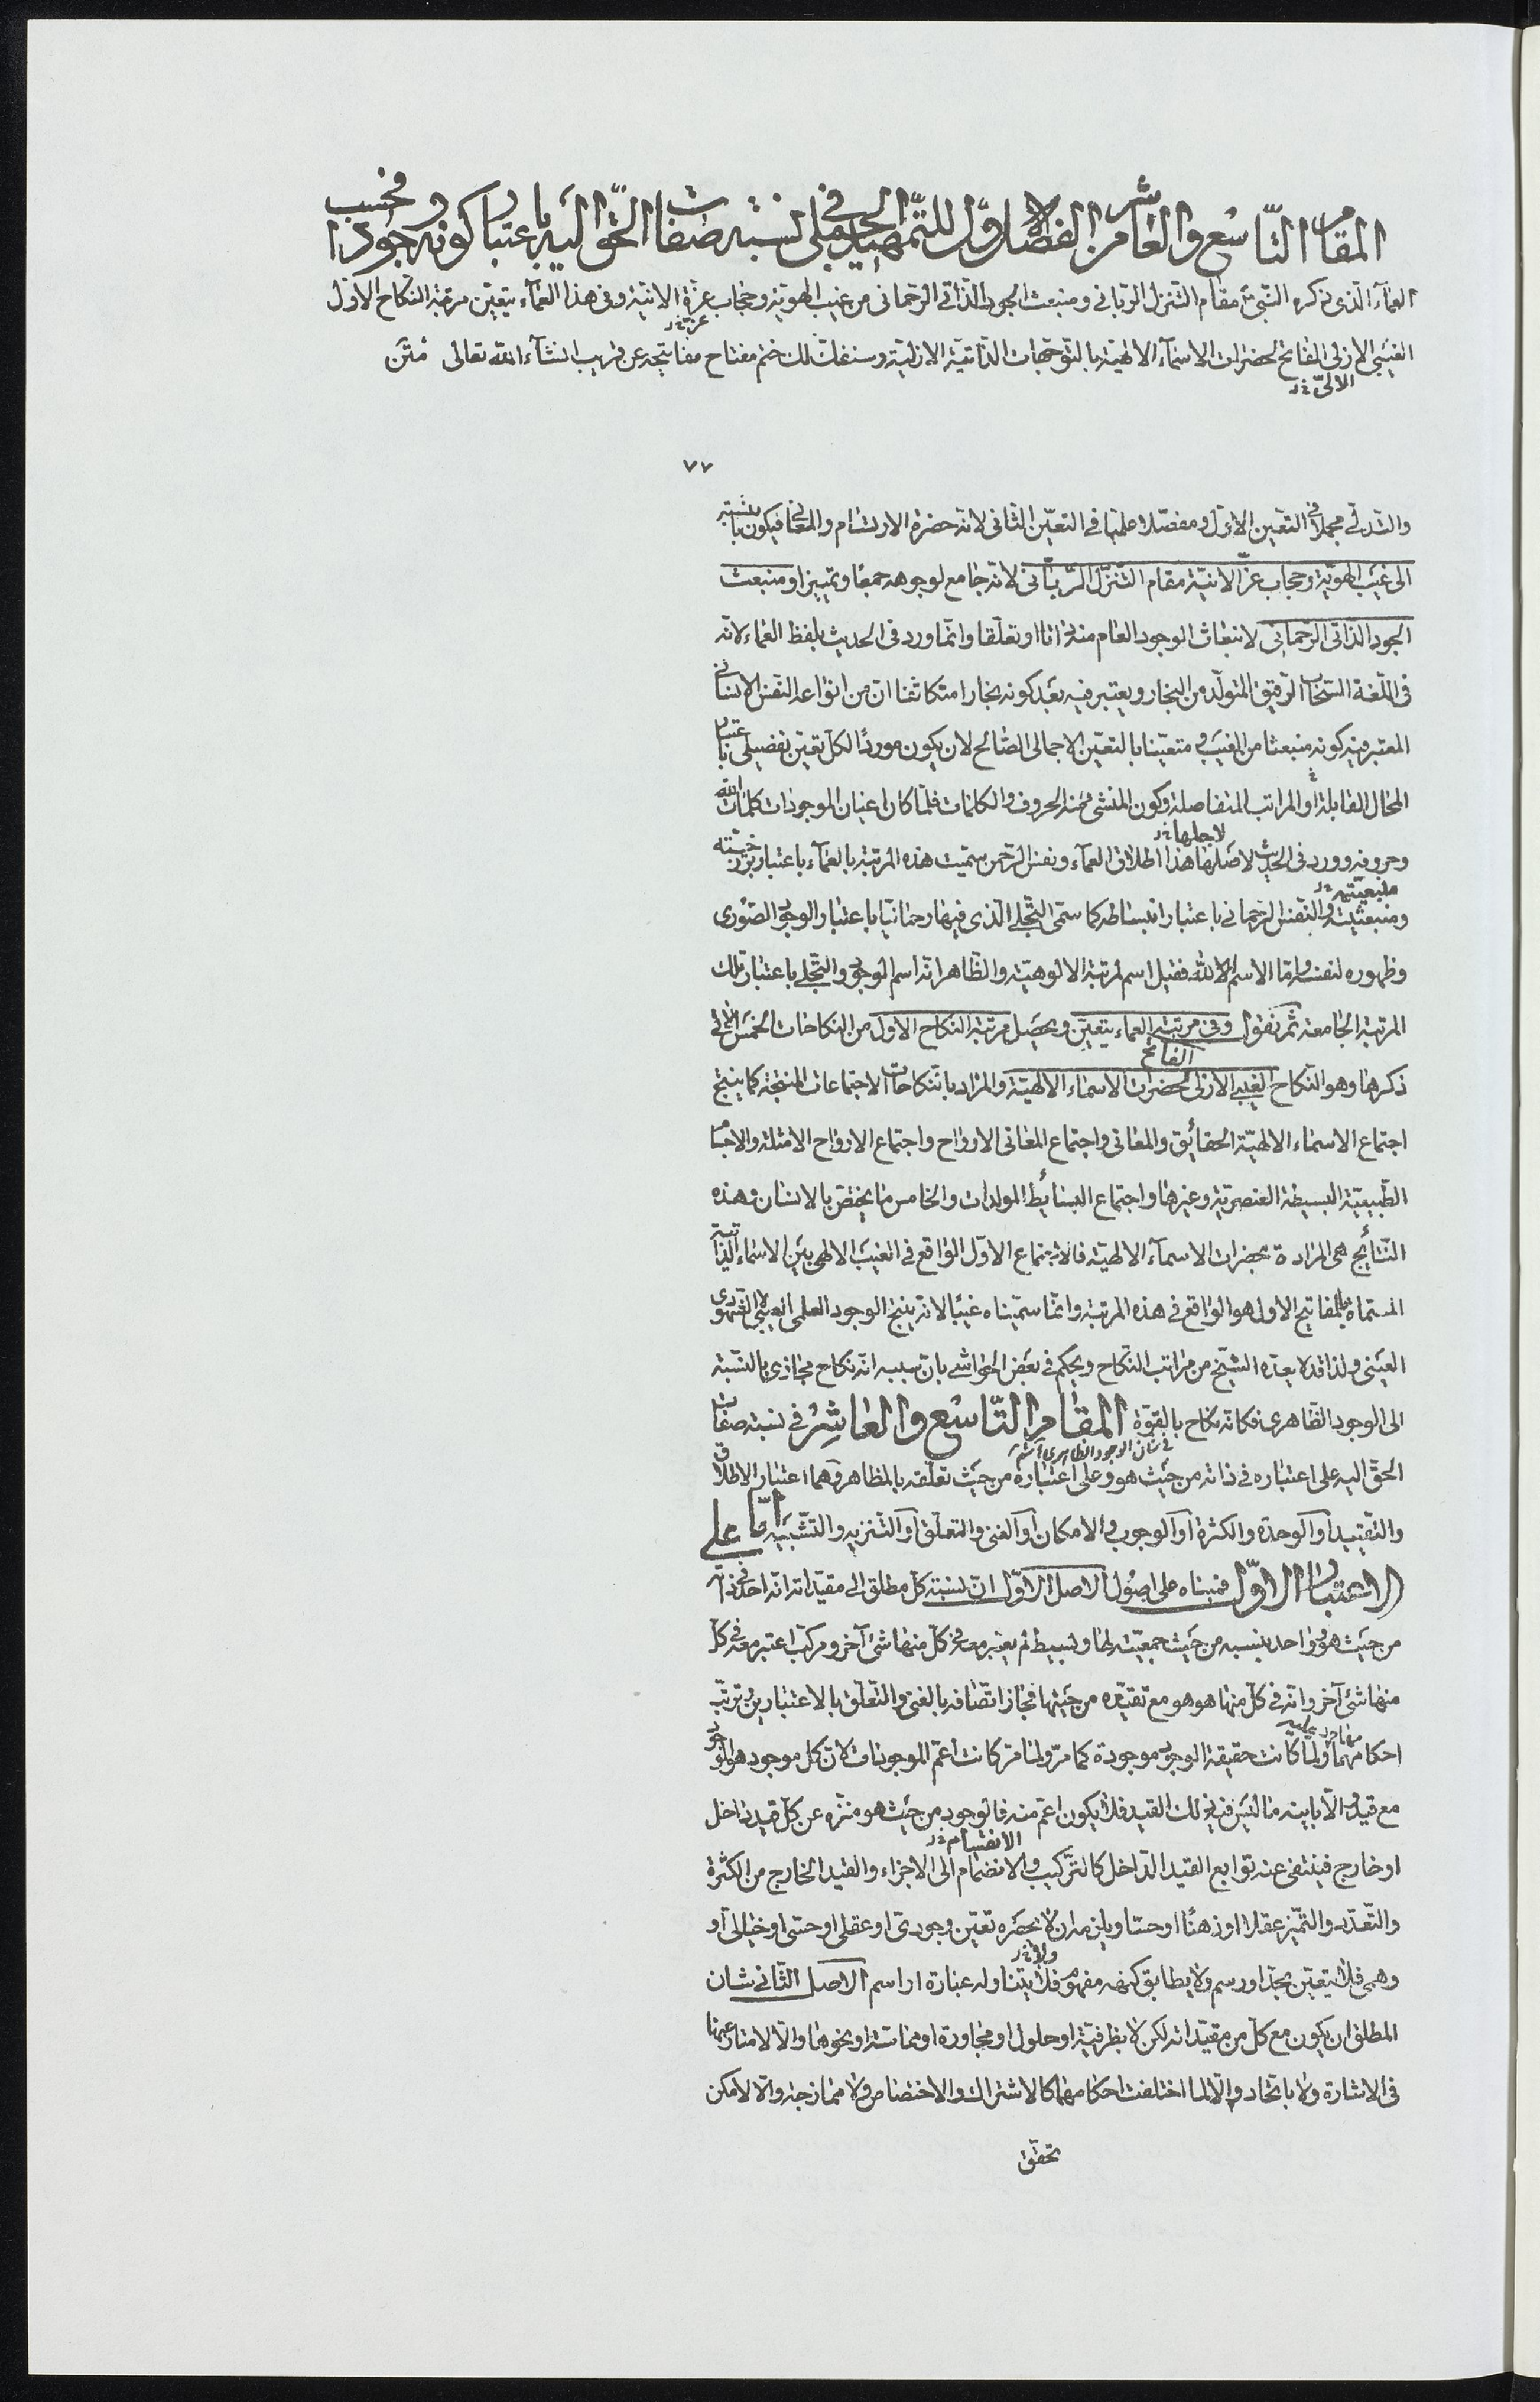 المقام التاسع والعاشر من الفصل الاول للتمهيد الجملى فى نسبة صفات الحق اليه باعتبار كونه وجودا فحسب
العمآء الّذى ذكره النبىّ مقام التنزل الربانى ومنبعث الجود الذاتى الرحمانى من غيب الهوية وحجاب عزة الانية وفى هذا العمآء يتعيّن مرتبة النكاح الاوّل
عزّ خ‌ر
الغيبى الازلى الفاتح لحضرات الاسمآء الالهيّة بالتوجهات الذاتيّة الازليّة وسنفكّ لك ختم مفتاح مفاتيحه عن قريب انشآء الله تعالى متن
٧٧
والتدلّى مجملا فى التعيّن الاوّل ومفصّلا علميا فى التعيّن الثانى لانّه حضرة الارتسام والمعانى فيكون بالنسبة
الى غيب الهويّة وحجاب عزّ الانيّة مقام التّنزّل الربّانى لانّه جامع لوجوهه جمعا وتمييزا ومنبعث
الجود الذاتى الرّحمانى لانبعاث الوجود العام منه ذاتا او تعلّقا وانّما ورد فى الحديث بلفظ العماء لانّه
فى اللّغة السّحاب الرّقيق المتولّد من البخار ويعتبر فيه بعد كونه بخارا متكاثفا انّ من انواعه النّفس الانسانى
المعتبر فيه كونه منبعثا من الغيب ومتعيّنا بالتعيّن الاجمالى الصّالح لان يكون موردًا لكلّ تعيّن تفصيلى باعتبار
المحال القابلة او المراتب المتفاصلة وكون المنشىء منه الحروف والكلمات فلمّا كان اعيان الموجودات كلمات الله
لاجلها خ‌ر
وحروفه وورد فى الحديث لاصلها هذا اطلاق العمآء ونفس الرّحمن سمّيت هذه المرتبة بالعمآء باعتبار برزخيّته
ومنبعثيّته والنّفس الرّحمانى باعتبار انبساطه كما سمّى التّجلّى الّذى فيها رحمانيّا باعتبار الوجود الصّورى
وظهوره لنفسه وامّا الاسم الله فقيل اسم لمرتبة الالوهيّة والظّاهر انّه اسم الوجود والتّجلّى باعتبار تلك
المرتبة الجامعة ثمّ نقول وفى مرتبة العماء يتعيّن ويحصل مرتبة النكاح الاول من النكاحات الخمس الّتى
الفاتح
ذكرها وهو النّكاح الغيبى الازلى لحضرات الاسماء الالهيّة والمراد بالنّكاحات الاجتماعات المنتجة كما ينتج
اجتماع الاسماء الالهيّة الحقائق والمعانى واجتماع المعانى الارواح واجتماع الارواح الامثلة والاجسام
الطّبيعيّة البسيطة العنصريّة وغيرها واجتماع البسائط المولدات والخامس ما يختصّ بالانسان وهذه
النّتائج هى المرادة بحضرات الاسمآء الالهيّة فالاجتماع الاوّل الواقع فى الغيب الالهى بين الاسماء الذّاتيّة
المسمّاة بالمفاتيح الاول هو الواقع فى هذه المرتبة وانّما سمّيناه غيبًا لانّه ينتج الوجود العلمى الغيبى لا الشّهودى
العينى ولذا قد لا يعدّه الشّيخ من مراتب النّكاح ويحكم فى بعض الحواشى بانّ سببه انّه نكاح مجازى بالنّسبة
الى الوجود الظّاهرى فكانّه نكاح بالقوّة المقام التّاسع والعاشر فى نسبة صفات
الحقّ اليه على اعتباره فى ذاته من حيث هو وعلى اعتباره من حيث تعلّقه بالمظاهر وهما اعتبار الاطلاق
والتّقييد او الوحدة والكثرة او الوجوب والامكان او الغنى والتعلّق او التّنزيه والتّشبيه امّا على
الاعتبار الاوّل فمبناه على اصول الاصل الاوّل انّ نسبة كلّ مطلق الى مقيّداته انّه احد فى ذاته
من حيث هو وواحد بنسبه من حيث جمعيّته لها وبسيط لم يعتبر معه فى كلّ منها شئ آخر ومركّب اعتبر معه فى كلّ
منها شئ آخر وانّه فى كلّ منها هو هو مع تقيّده من حيثها فجاز اتّصافه بالغنى والتّعلّق بالاعتبارين وترتّب
احكامهما ولمّا كانت حقيقة الوجود موجودة كما مرّ ولما مرّ كانت اعمّ الموجودات لانّ كلّ موجود هو الموجود
مع قيد والّا باينه ما ليس فيه ذلك القيد فلا يكون اعمّ منه فالوجود من حيث هو منزّه عن كلّ قيد داخل
الانقسام خ‌ر
او خارج فينتفى عنه توابع القيد الدّاخل كالتّركيب والانضمام الى الاجزاء والقيد الخارج من الكثرة
والتّعدّد والتّميّز عقلا او ذهنًا او حسّا ويلزمه ان لا يحصره تعيّن وجودىّ او عقلى او حسّى او خيالى او
ولا خ‌ر
وهمى فلا يتعيّن بحدّ او رسم ولا يطابق كنهه مفهوم فلا يتناوله عبارة او اسم الاصل الثّانى شان
المطلق ان يكون مع كلّ من مقيّداته لكن لا بظرفيّة او حلول او مجاورة او مماسّة او نحوها والّا لامتاز عنها
فى الاشارة ولا باتّحاد والّا لما اختلفت احكامهما كالاشتراك والاختصاص ولا ممازجة والّا لامكن
تحقّق